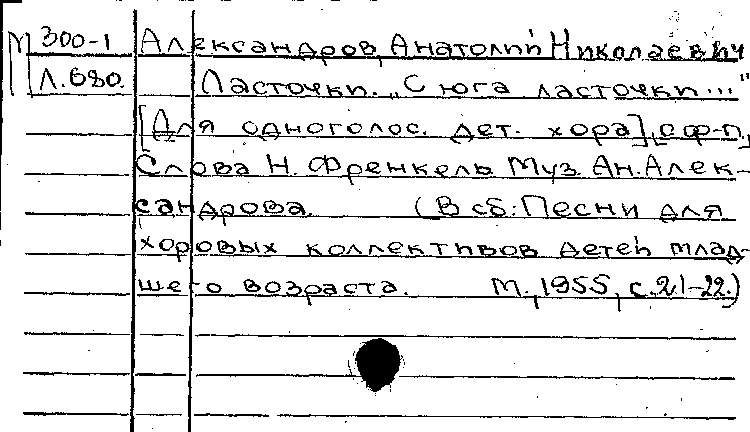 М 300-1 Александров, Анатолий Николаевич
Л.680. Ласточки. „С юга ласточки..."
[Для одноголос. дет. хора], с ф-п.,
Слова Н. Френкель Муз. Ан. Алек-
сандрова. (В сб.: Песни для
хоровых коллективов детей млад-
шего возраста. М., 1955, с. 21-22.)